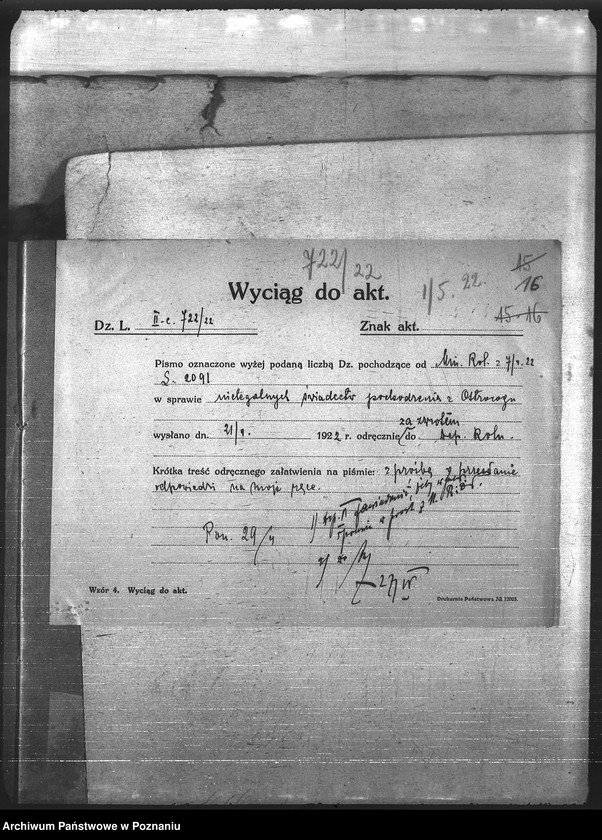 722/22
1/5. 22.
15
16
Wyciąg do akt.
15. 16
Dz. L. II-c. 722/22
Znak akt.
Pismo oznaczone wyżej podaną liczbą Dz. pochodzące od Min. Rol. z 7/4. 22
L. 2091
w sprawie nielegalnych świadectw pochodzenia z Ostrowgu
za zwrotem
wysłano dn. 21/4. 1922 r. odręcznie do Dep. Roln.
Krótka treść odręcznego załatwienia na piśmie: z prośbą o przesłanie
odpowiedzi na moje ręce.
Pon. 29/4
27/IV
Wzór 4. Wyciąg do akt.
Drukarnia Państwowa